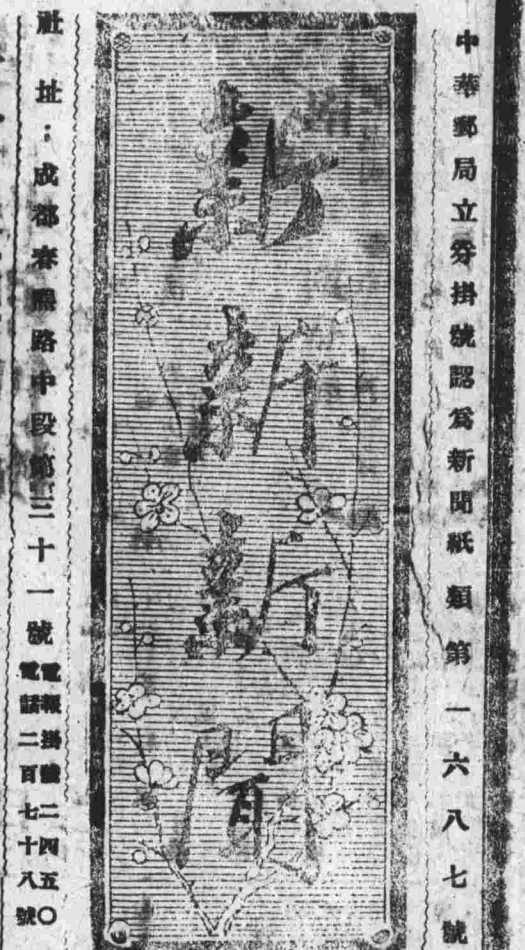 中華郵局立券掛號認為新聞紙類第一六八七號
新新新聞
社址：成都春熙路中段第三十一號
電報掛號二四五〇
電話二百七十八號